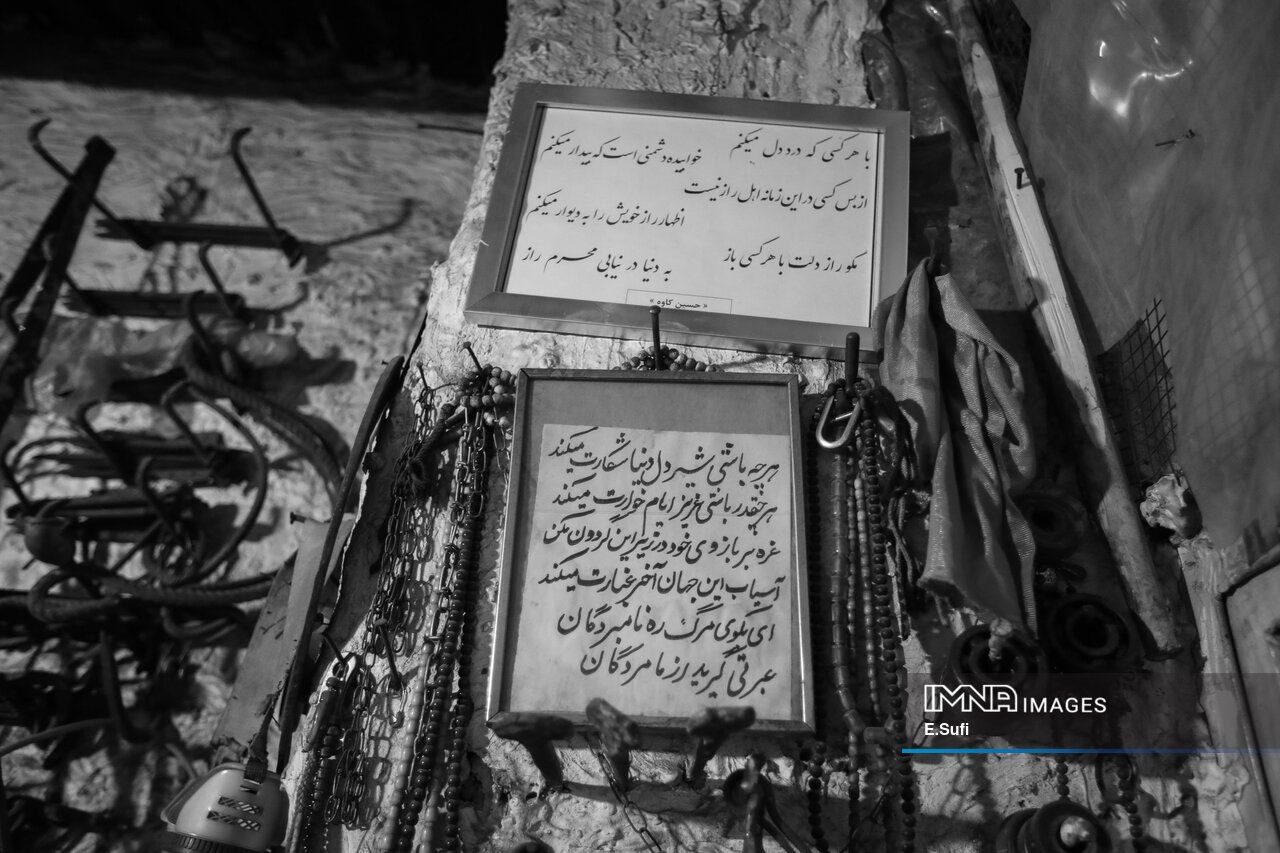 با هر کسی که درد دل میکنم خوابیده دشمنی است که بیدار میکنم
از بس کسی در این زمانه اهل راز نیست
اظهار راز خویش را به دیوار میکنم
مکو راز دلت با هر کسی باز
به دنیا در نیابی محرم راز
« حسین کاوه »
هر چه باشی شیر دل دنیا شکارت میکند
هر چقدر باشی عزیز ایام خوارت میکند
غره بر بازوی خود در زیر این گردون مکن
آسیاب این جهان آخر غبارت میکند
ای بکوی مرگ ره نامبردگان
عبرتی گیرید از ما مردگان
IMNA IMAGES
E.Sufi